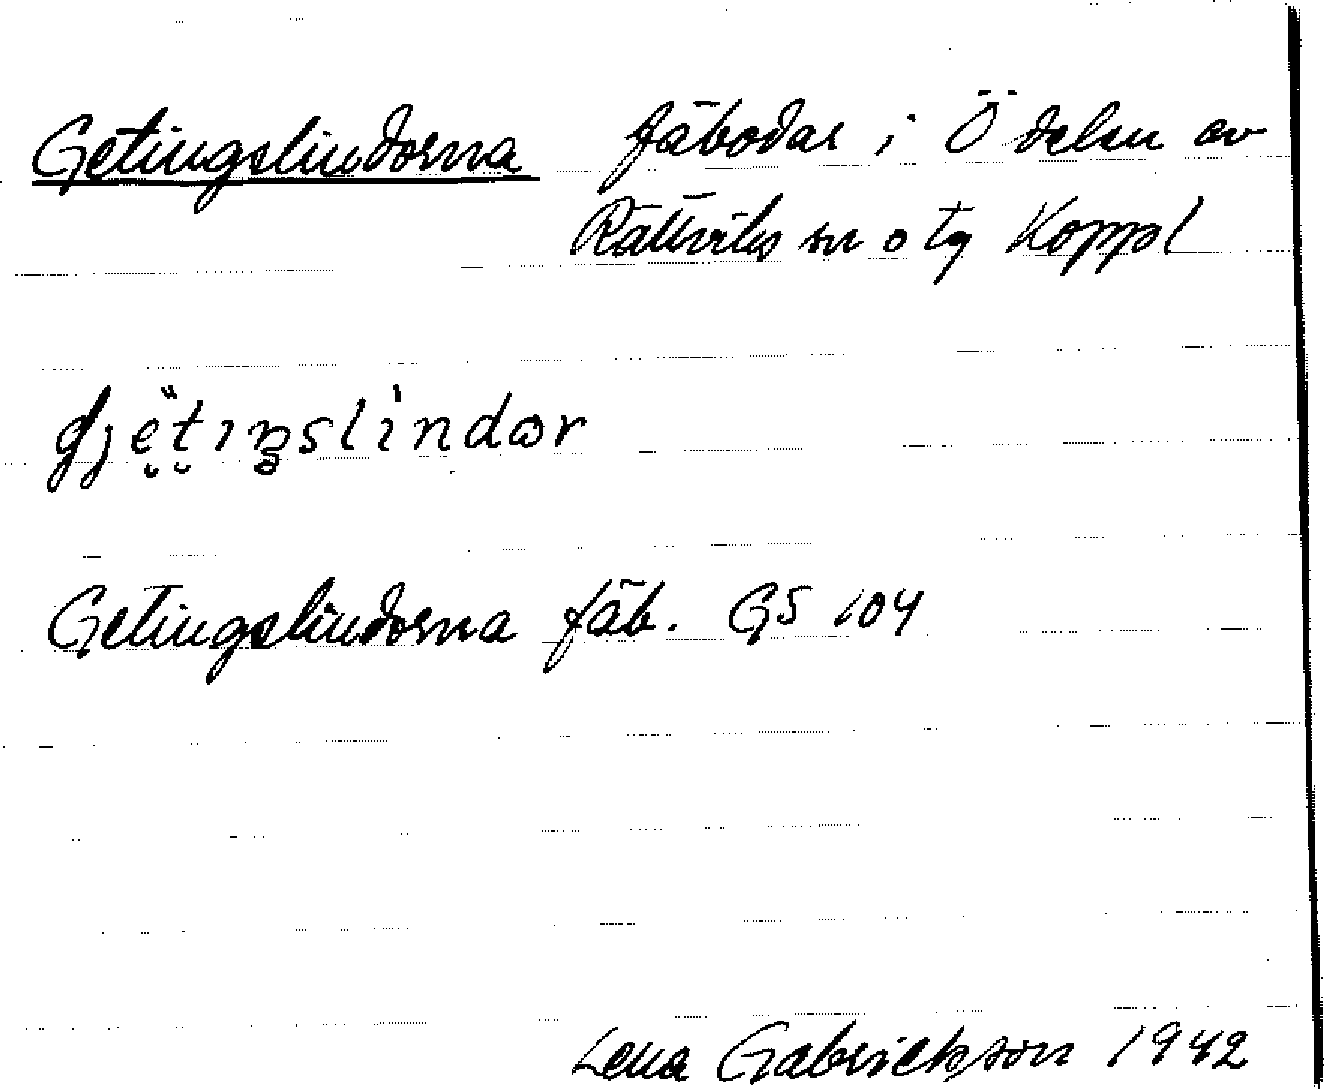 Getingslindorna fäbodar i Ö delen av
Rättviks sn o tg Koppl
gjetiŋslìndɷr
Getingslindorna fäb. GS 104
Lena Gabrielsson 1942